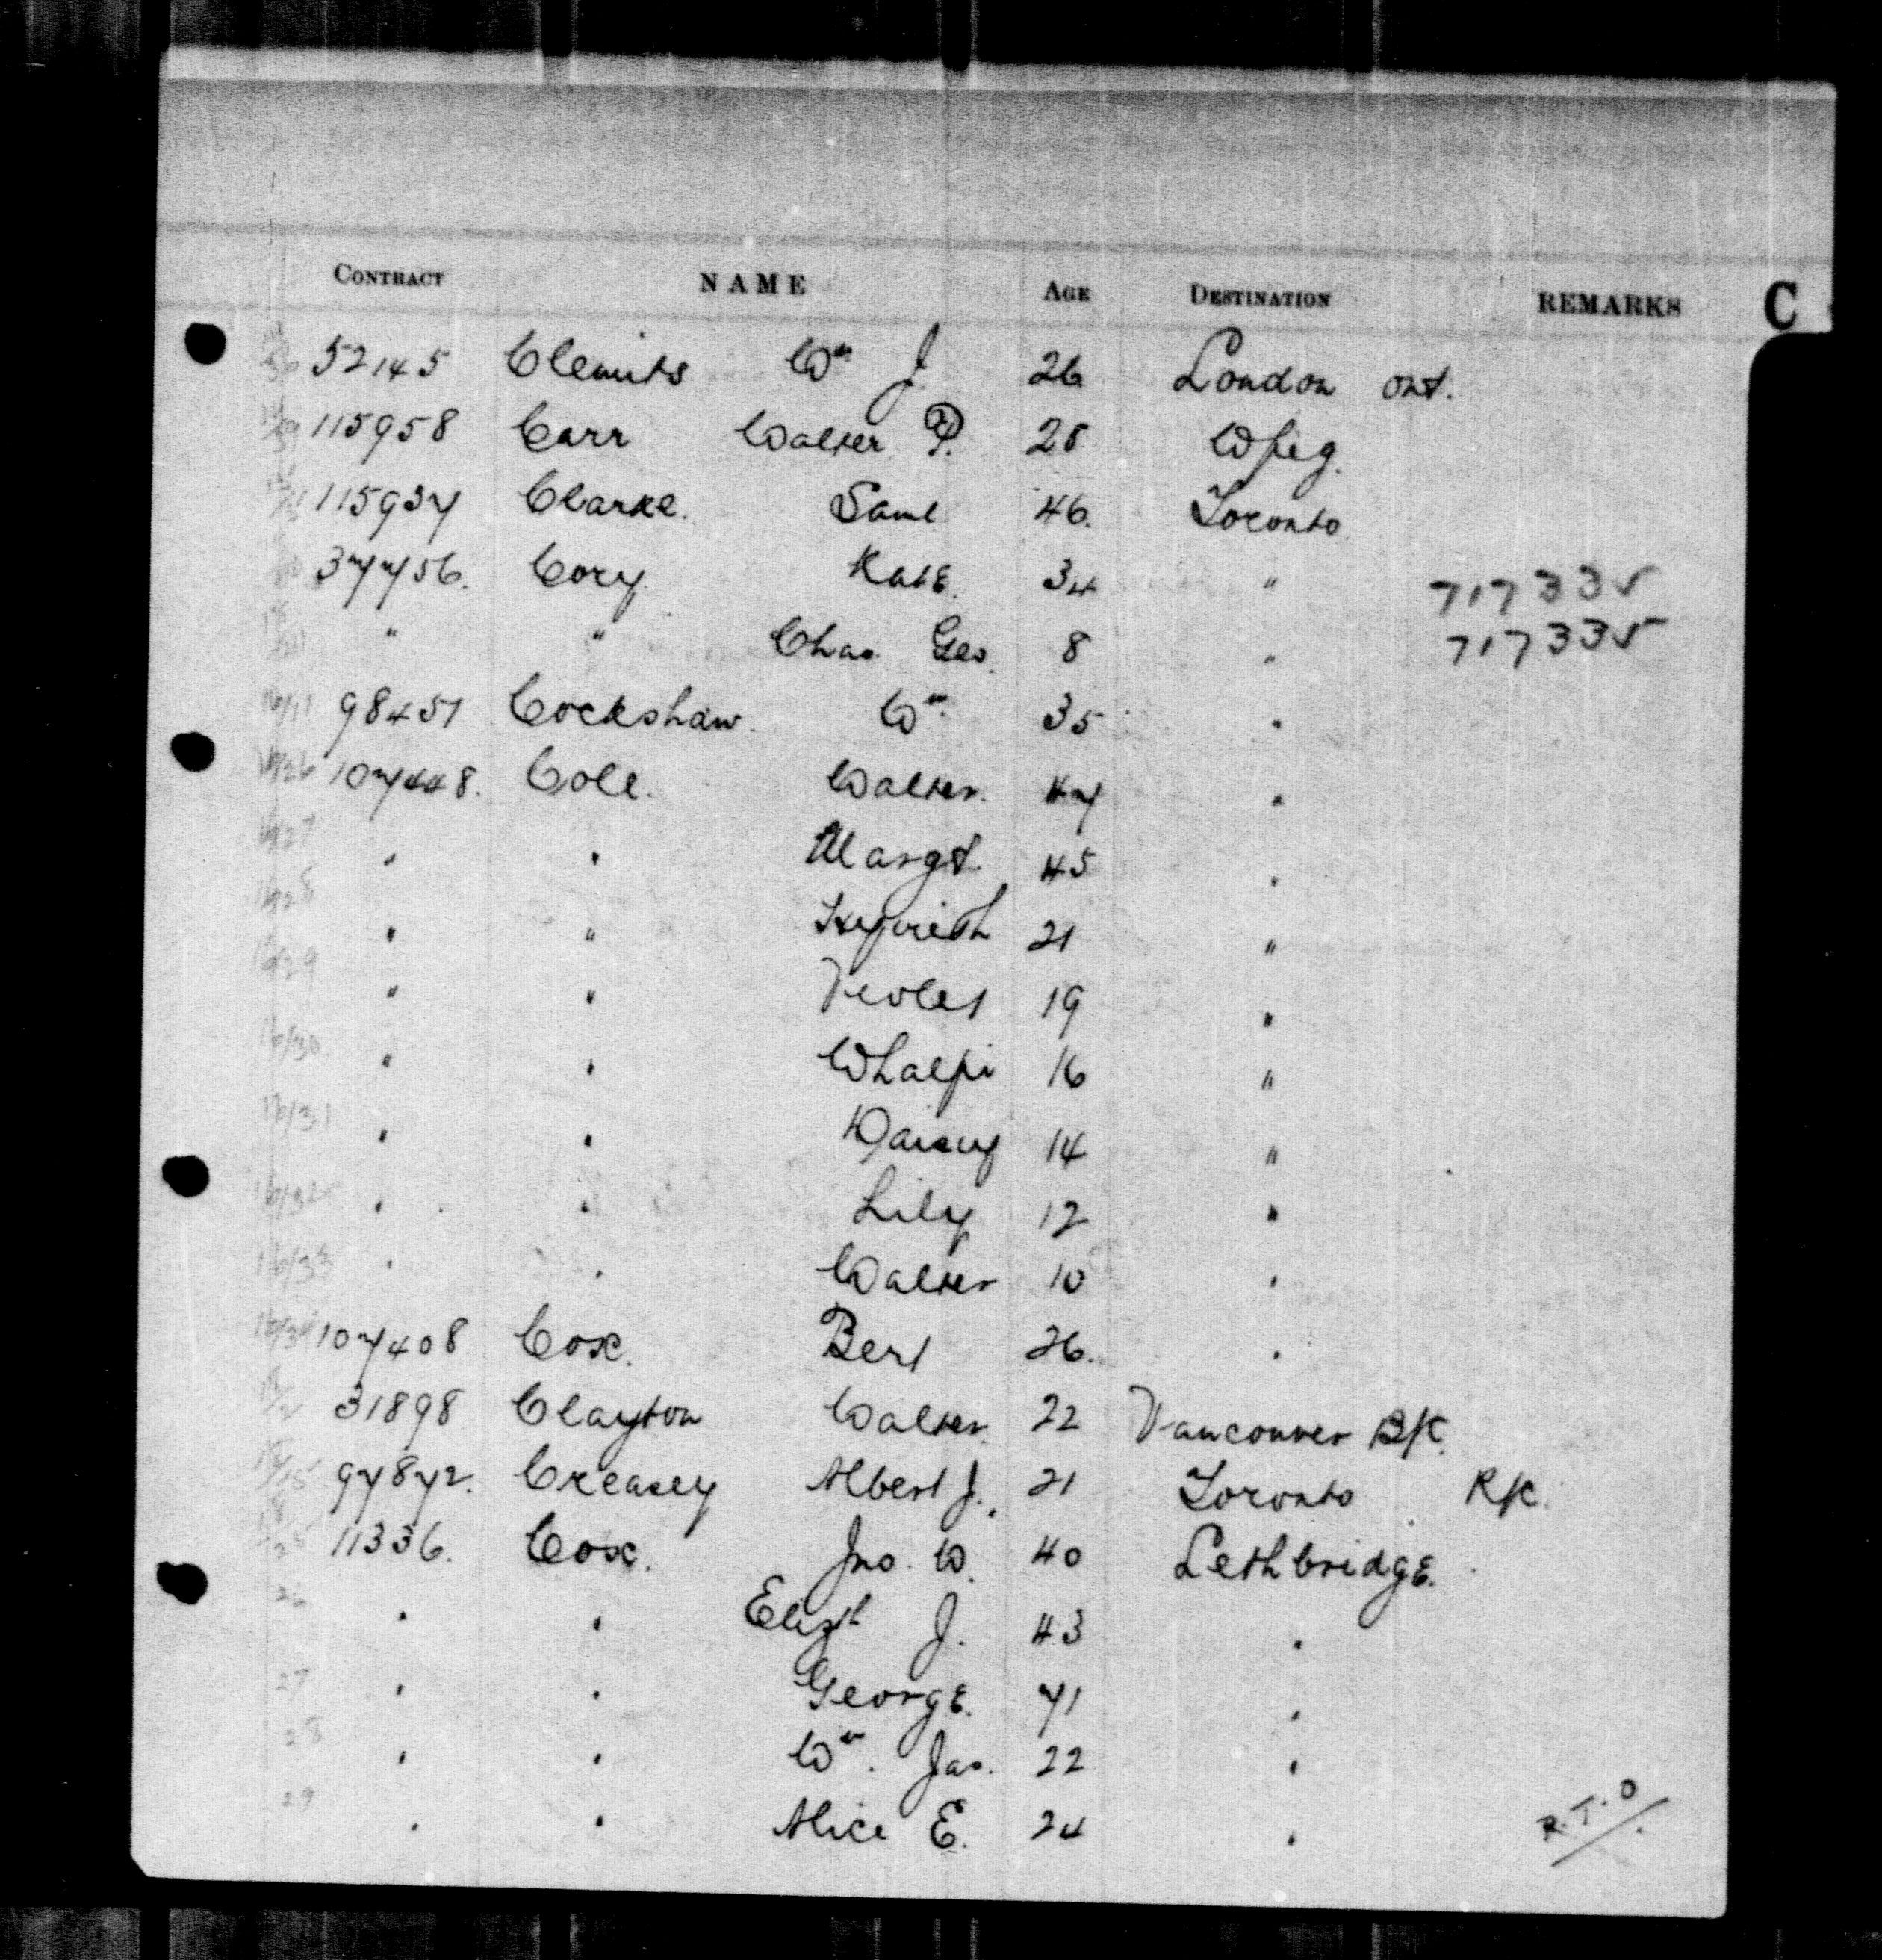 CONTRACT NAME AGE DESTINATION REMARKS C
52145 Clemits Wm J. 26 London ont.
115958 Carr Walter P. 28 Wpeg.
115937 Clarke. Saml 46. Toronto
377756. Cory Kate. 34 " 717335
" " Chas. Geo. 8 " 717335
16/11 98457 Cockshaw. Wm. 35 "
16/26 107448. Cole. Walter. 47 "
16/27 " " Margt. 45 "
16/28 " " 21 "
16/29 " " Violet 19 "
16/30 " " 16 "
16/31 " " Daisy 14 "
16/32 " " Lily 12 "
16/33 " " Walter 10 "
16/34 107408 Cox. Bert 26. "
31898 Clayton Walter. 22 Vancouver
97872. Creasey Albert J. 21 Toronto
11336. Cox. Jno. W. 40 Lethbridge.
26 " " Elizth J. 43 "
27 " " George. 71 "
28 " " Wm. Jas. 22 "
29 " " Alice E. 24 "
R.T.O